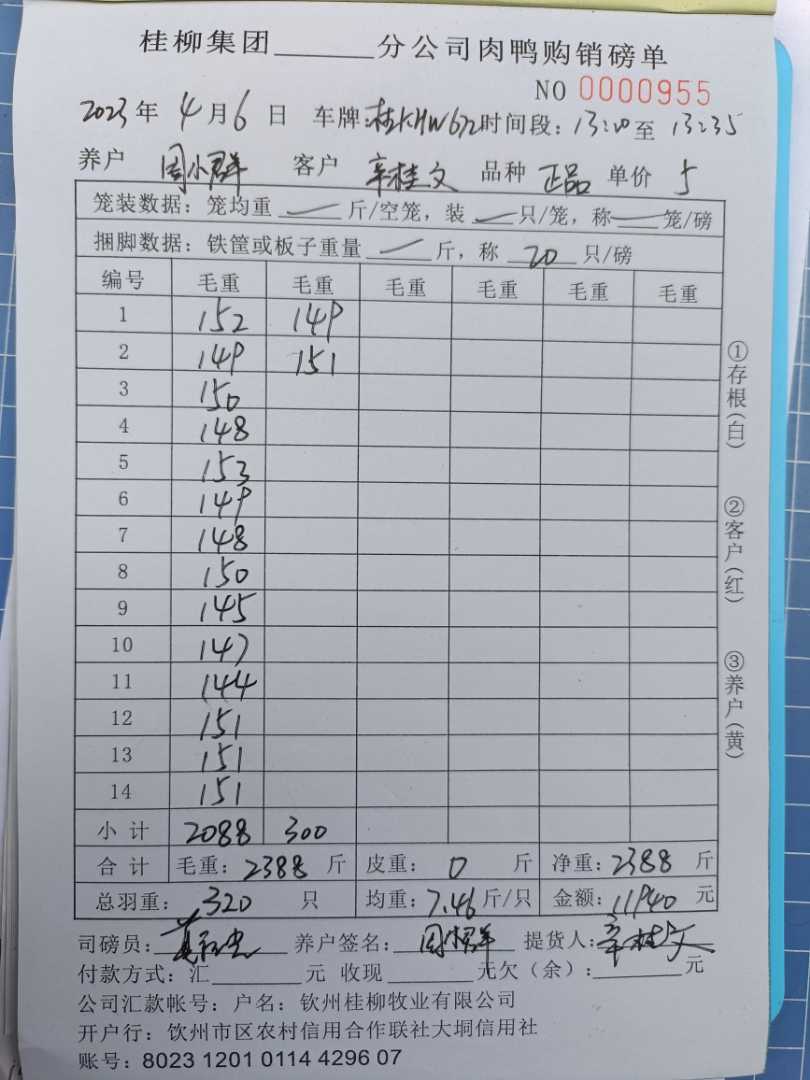 桂柳集团______分公司肉鸭购销磅单
NO 0000955
2023年 4月6日 车牌:桂KHW672时间段:13:20至 13:35
养户 周小群 客户 辛桂文 品种 正品 单价 5
笼装数据:笼均重 / 斤/空笼,装 / 只/笼,称 / 笼/磅
捆脚数据:铁筐或板子重量 / 斤,称 20 只/磅
编号 毛重 毛重 毛重 毛重 毛重 毛重
1 152 149
2 149 151
3 150
4 148
5 153
6 149
7 148
8 150
9 145
10 147
11 144
12 151
13 151
14 151
小计 2088 300
合计 毛重:2388 斤 皮重: 0 斤 净重:2388 斤
总羽重: 320 只 均重:7.46斤/只 金额:11940 元
司磅员: 养户签名:周小群 提货人:辛桂文
付款方式:汇______元 收现______元欠(余):______元
公司汇款帐号:户名:钦州桂柳牧业有限公司
开户行:钦州市区农村信用合作联社大垌信用社
账号:8023 1201 0114 4296 07
①存根(白)
②客户(红)
③养户(黄)